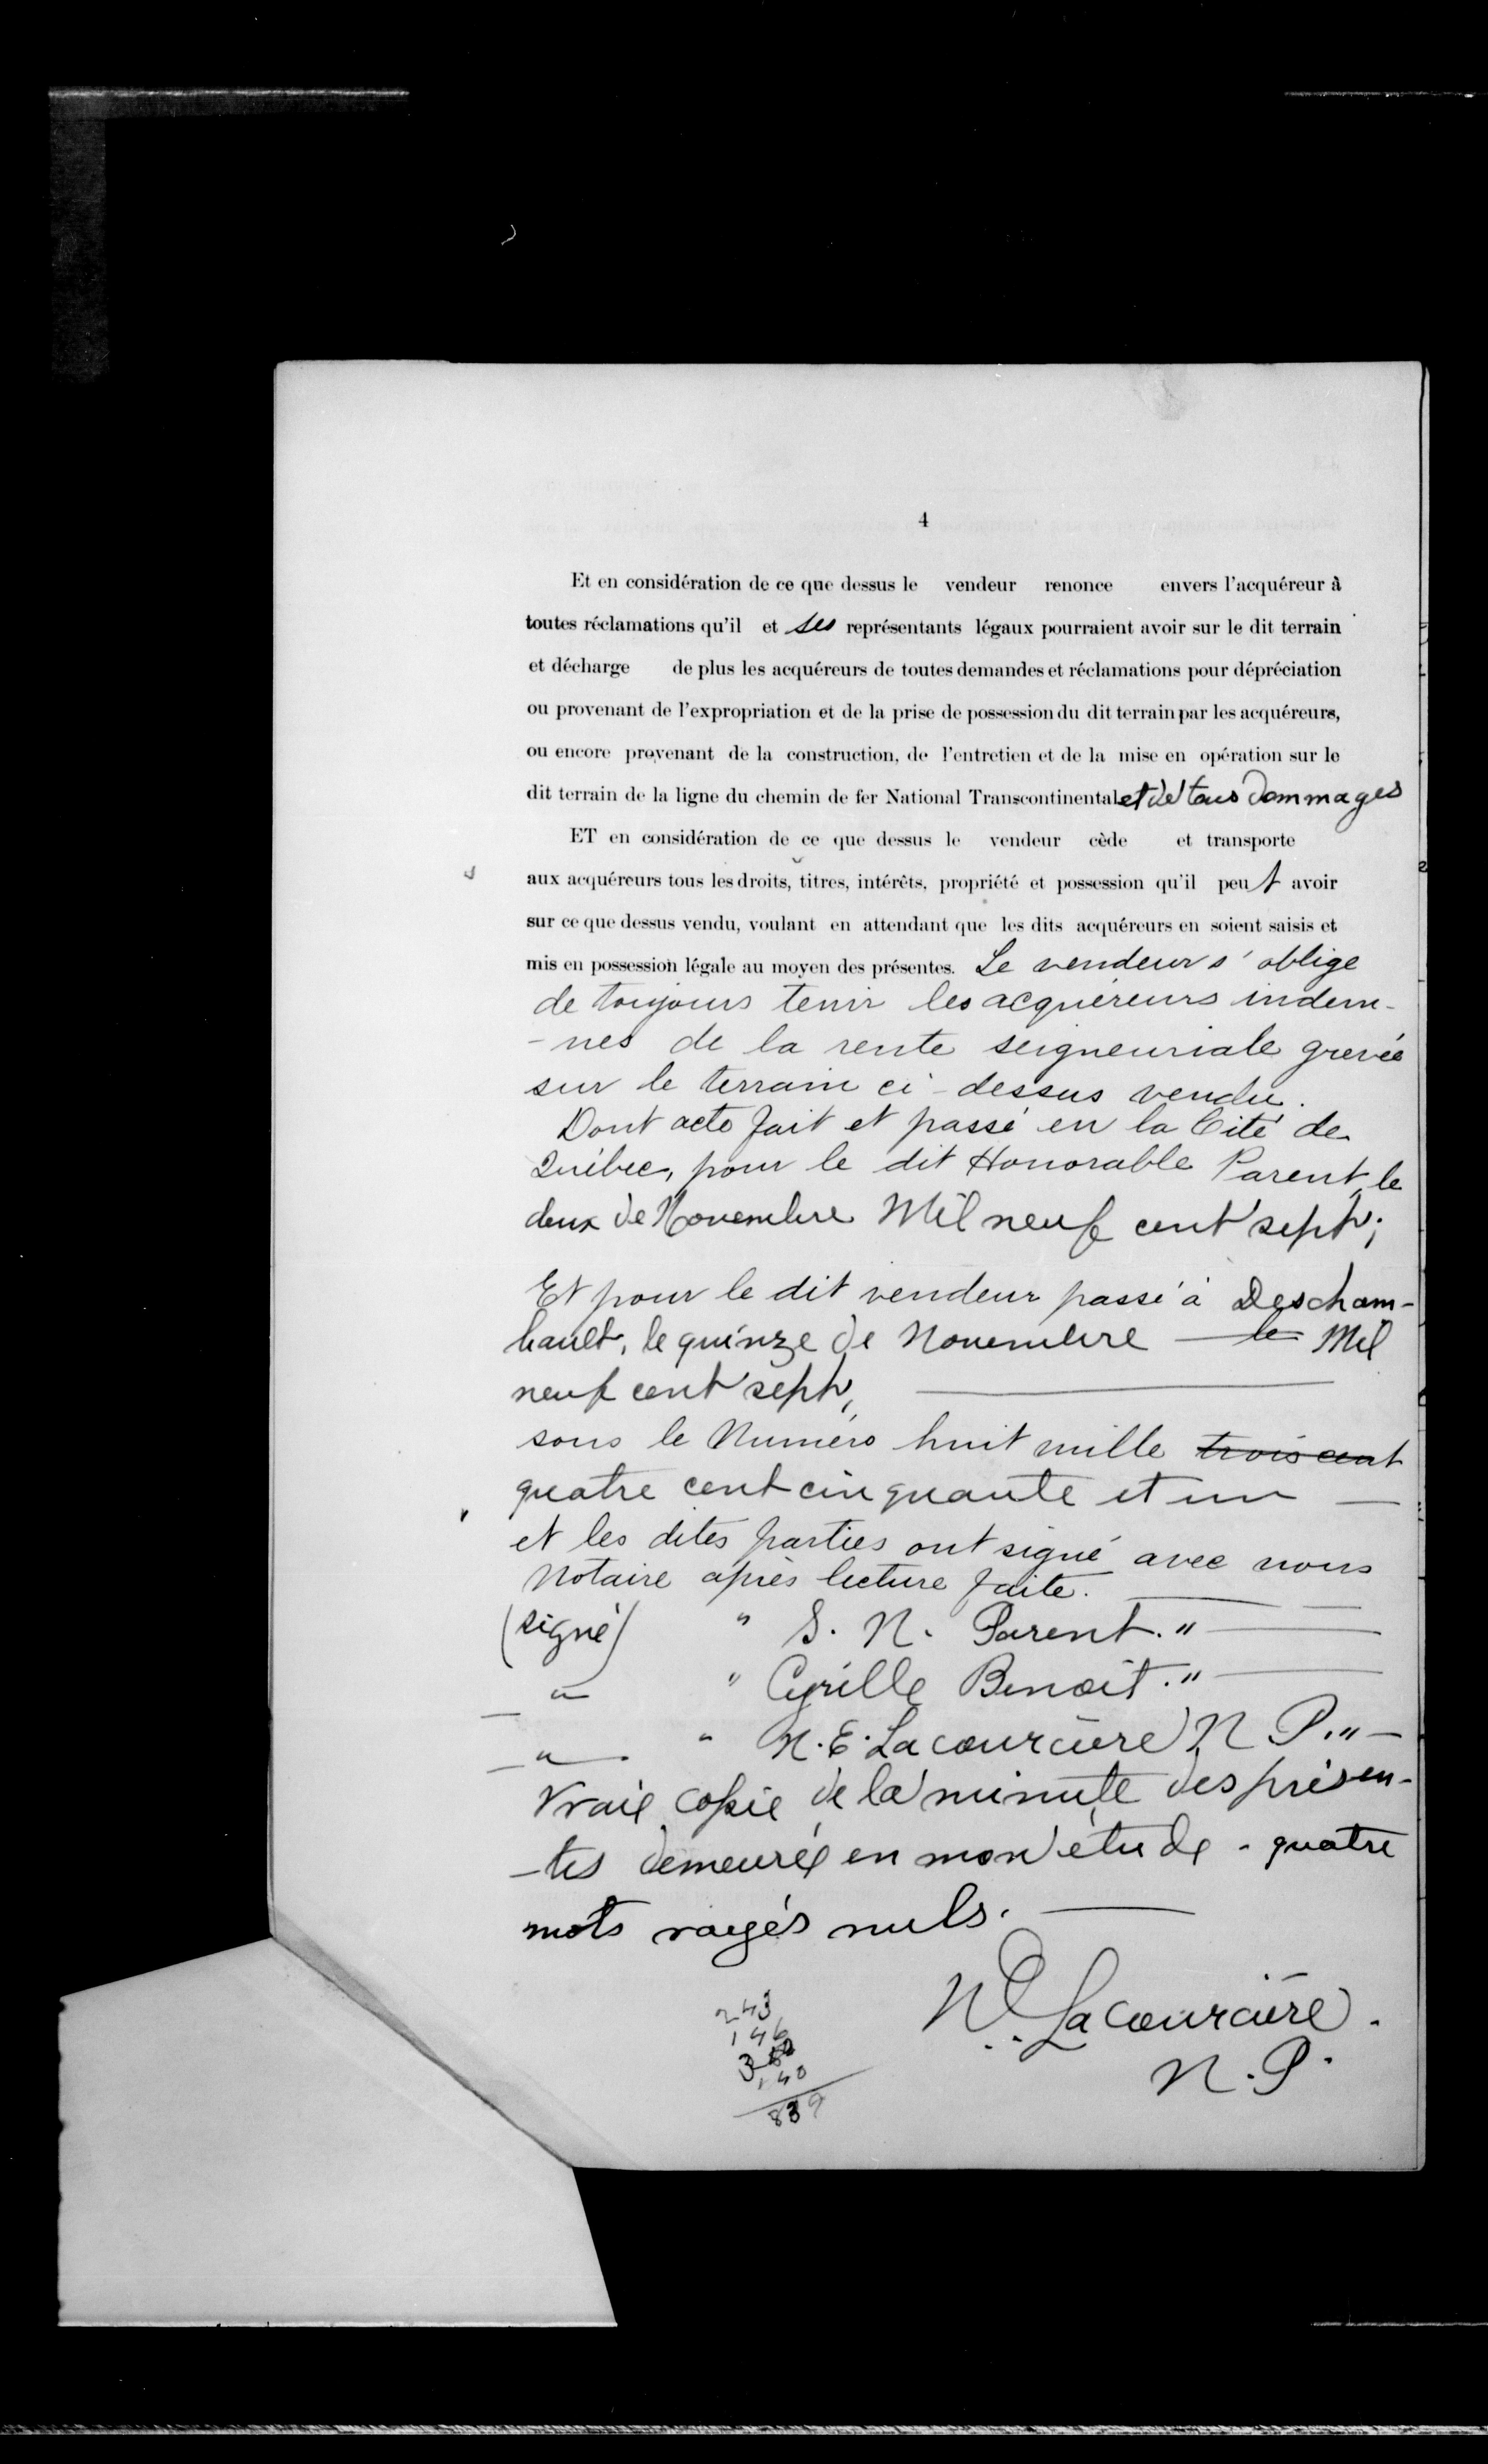 4
Et en considération de ce que dessus le vendeur renonce envers l'acquéreur à
toutes réclamations qu'il et ses représentants légaux pourraient avoir sur le dit terrain
et décharge de plus les acquéreurs de toutes demandes et réclamations pour dépréciation
ou provenant de l'expropriation et de la prise de possession du dit terrain par les acquéreurs,
ou encore provenant de la construction, de l'entretien et de la mise en opération sur le
dit terrain de la ligne du chemin de fer National Transcontinental et de tous dommages
ET en considération de ce que dessus le vendeur cède et transporte
aux acquéreurs tous les droits, titres, intérêts, propriété et possession qu'il peut avoir
sur ce que dessus vendu, voulant en attendant que les dits acquéreurs en soient saisis et
mis en possession légale au moyen des présentes. Le vendeur s'oblige
de toujours tenir les acquéreurs indem-
-nes de la rente seigneuriale grevée
sur le terrain ci-dessus vendu.
Dont acte fait et passé en la Cité de
Québec, pour le dit Honorable Parent, le
deux de Novembre Mil neuf cent sept;
Et pour le dit vendeur passé à Descham-
bault, le quinze de Novembre le Mil
neuf cent sept,
sous le Numéro huit mille trois cent
quatre cent cinquante et un
et les dites parties ont signé avec nous
Notaire après lecture faite.
(signé) " S. N. Parent."
" " Cyrille Benoit."
" " N. E. Lacourcière N P."
Vraie copie de la minute des présen-
-tes demeurée en mon étude - quatre
mots rayés nuls.
N E Lacourcière.
N. P.
243
146
140
839